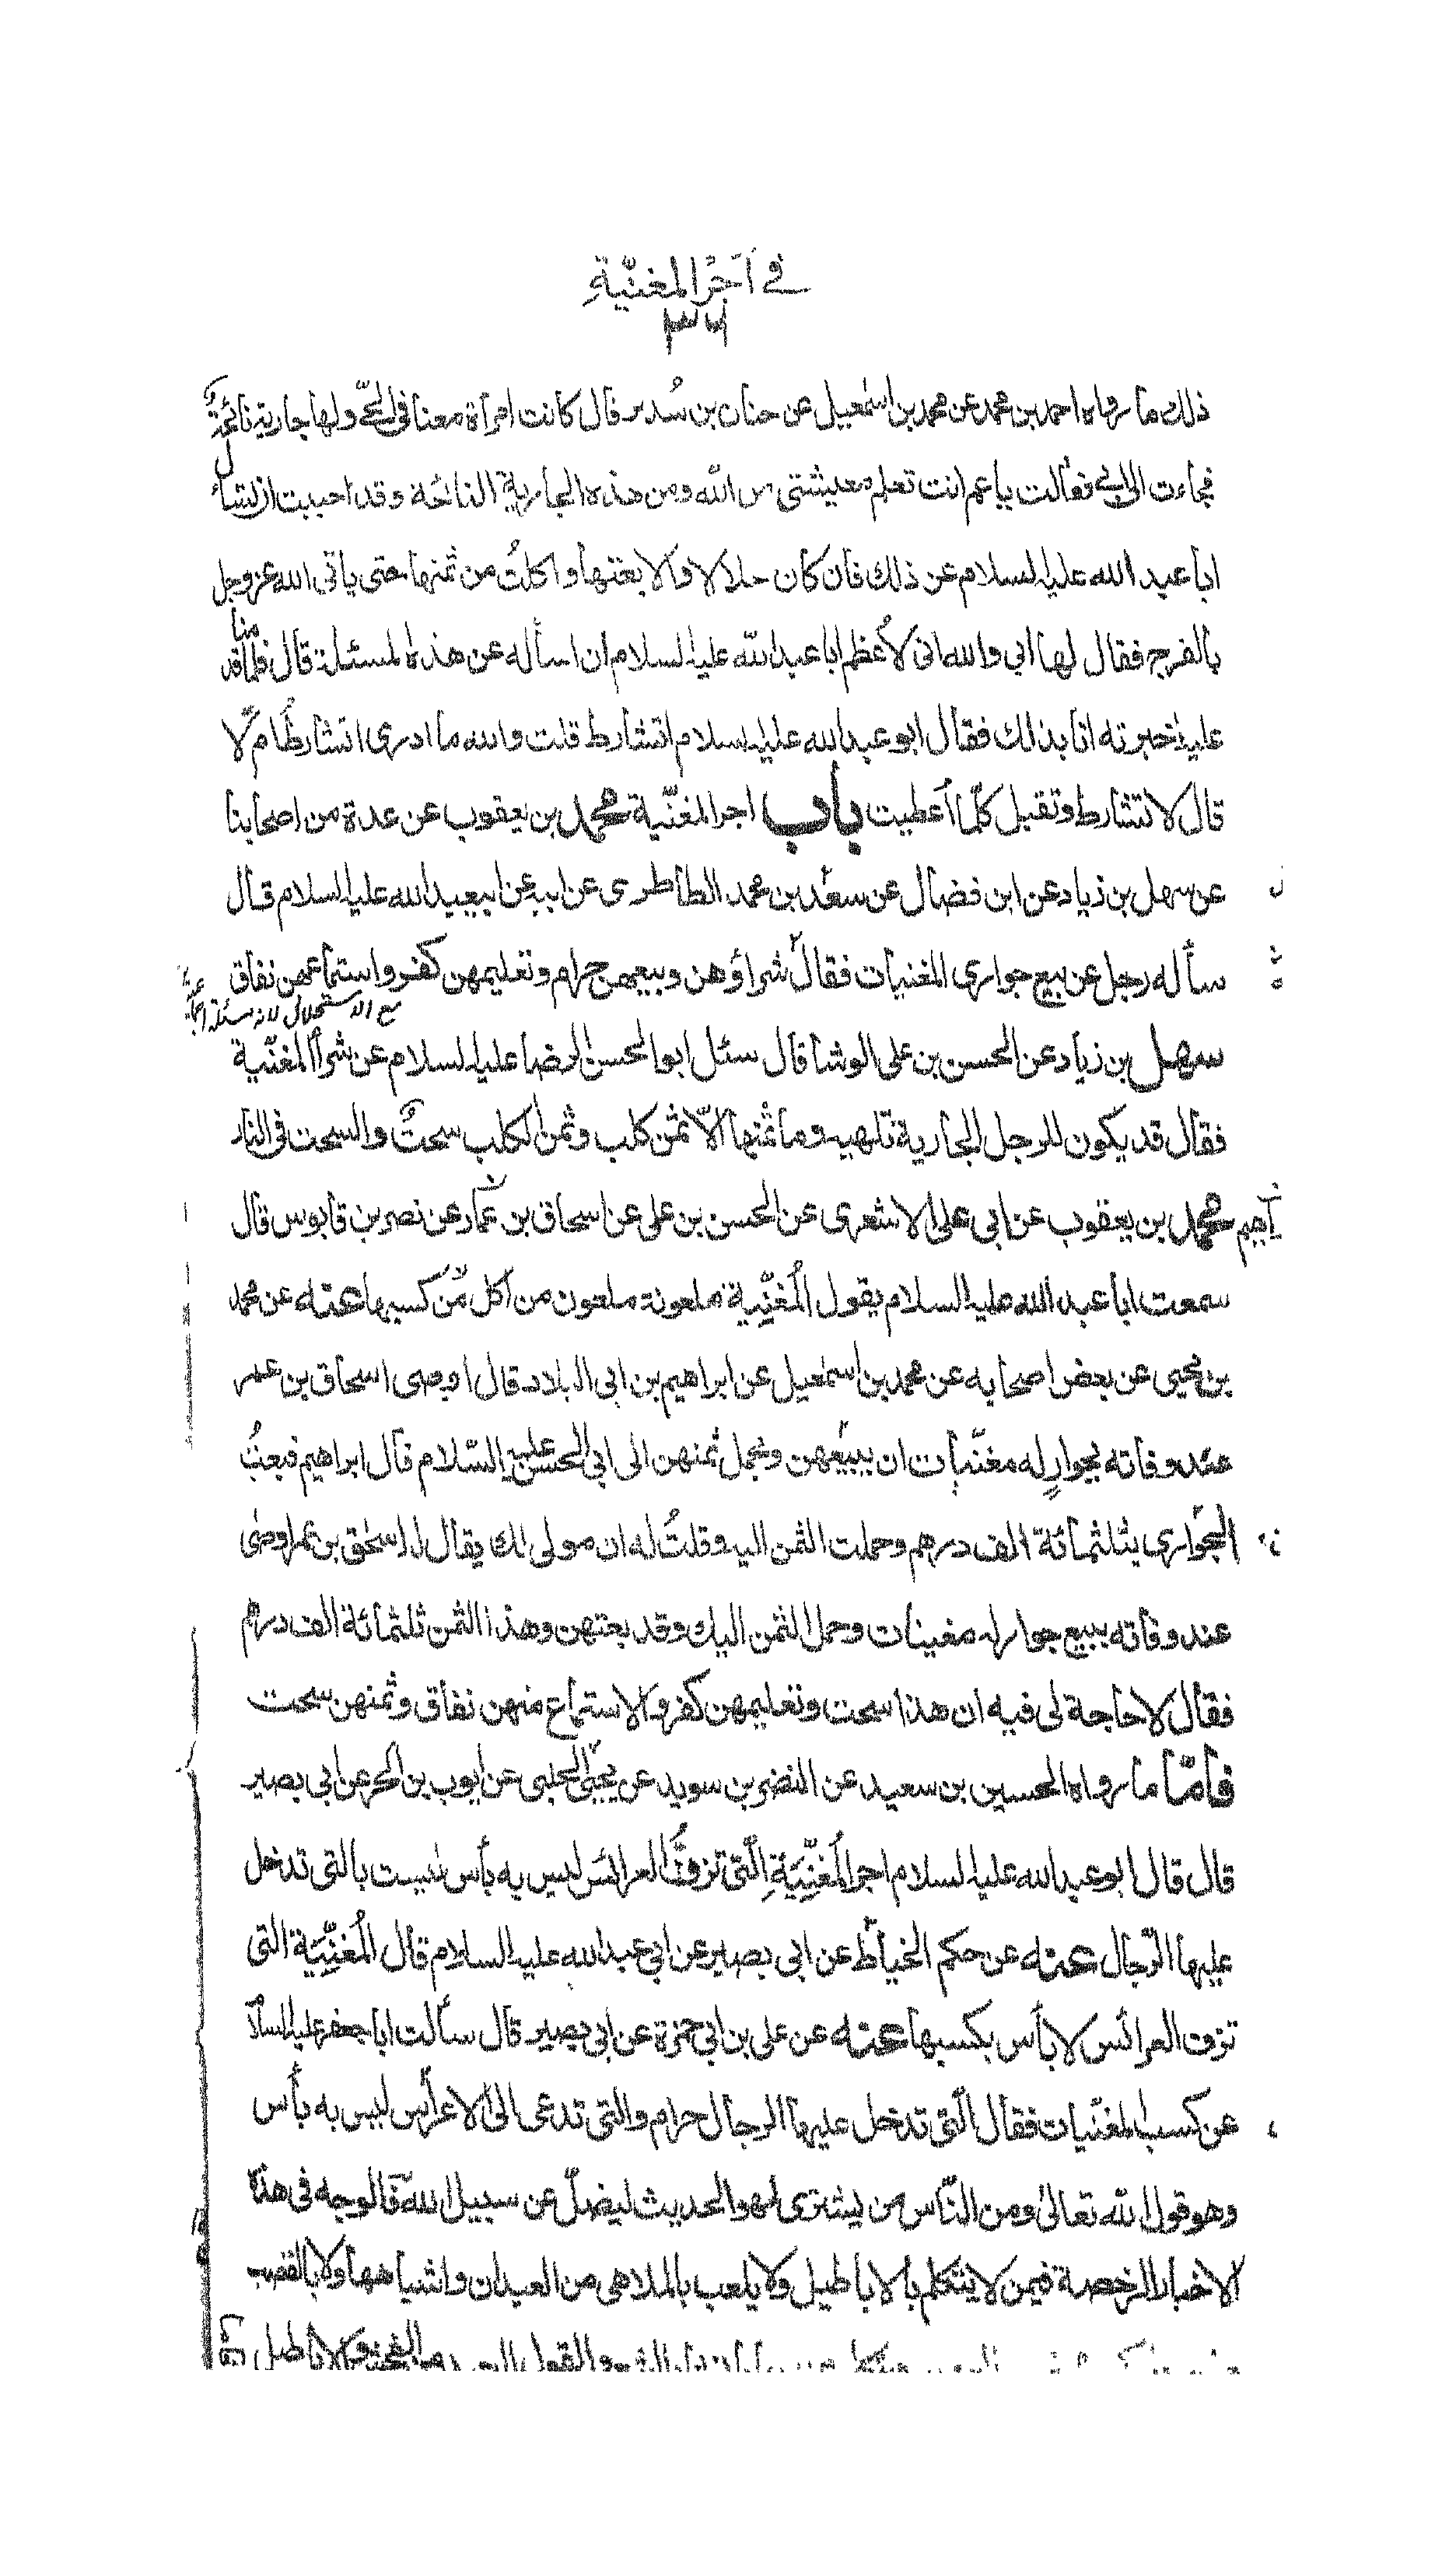 في اَجْرِ المغنّيةِ
٣٦
ذلك ما رواه احمد بن محمد عن محمد بن اسمعيل عن حنان بن سُدير قال كانت امرأة معنا في الحيّ ولها جارية نائحةٌ
فجاءت الى ابي فقالت يا عم انت تعلم معيشتى من الله ومن هذه الجارية النائحة وقد احببت ان تسأل
ابا عبد الله عليه السلام عن ذلك فان كان حلالا والا بعتها واكلتُ من ثمنها حتى ياتي الله عز وجل
بالفرج فقال لها ابي والله انى لأعظم ابا عبد الله عليه السلام ان اسأله عن هذه المسئلة قال فلما قدمنا
عليه اخبرته انا بذلك فقال ابو عبد الله عليه السلام اتشارط قلت والله ما ادرى اتشارط ام لا
قال لا تشارط وتقبل كلّما اُعطيت باب اجر المغنّية محمد بن يعقوب عن عدة من اصحابنا
عن سهل بن زياد عن ابن فضال عن سعد بن محمد الطاطرى عن ابيه عن ابيعبد الله عليه السلام قال
سأله رجل عن بيع جوارى المغنيات فقال شراؤهن وبيعهن حرام وتعليمهن كفر واستماعهن نفاق
مع الاستحلال لانه مسئلة
سهل بن زياد عن الحسن بن على الوشا قال سئل ابو الحسن الرضا عليه السلام عن شرأ المغنّية
فقال قد يكون للرجل الجارية تلهيه وما ثمنها الّا ثمن كلب وثمن الكلب سحتٌ والسحت في النار
محمد بن يعقوب عن ابي على الاشعرى عن الحسن بن على عن اسحاق بن عمّار عن نصر بن قابوس قال
سمعت ابا عبد الله عليه السلام يقول المُغنِّية ملعونة ملعون من اكل من كسبها عنه عن محمد
بن يحيى عن بعض اصحابه عن محمد بن اسمعيل عن ابراهيم بن ابى البلاد قال اوصى اسحاق بن عمر
عند وفاته بجوارٍ له مغنّيات ان يبيعهن ونحمل ثمنهن الى ابي الحسن عليه السّلام قال ابراهيم فبعتُ
الجوارى بثلثمائة الف درهم وحملت الثمن اليه وقلتُ له ان مولى لك يقال له اسحق بن عمر اوصى
عند وفاته ببيع جوار له مغنيات وحمل الثمن اليك وقد بعتهن وهذا الثمن ثلثمائة الف درهم
فقال لا حاجة لى فيه ان هذا سحت وتعليمهن كفر والاستماع منهن نفاق وثمنهن سحت
فأمّا ما رواه الحسين بن سعيد عن النضر بن سويد عن يحيى الحلبى عن ايوب بن الحر عن ابي بصير
قال قال ابو عبد الله عليه السلام اجر المُغنِّيَةِ الّتى تزُفُّ العرائس ليس به بأس ليست بالتى تدخل
عليها الرّجال عنه عن حكم الخيّاط عن ابى بصير عن ابي عبد الله عليه السلام قال المُغنِّيَة التى
تزف العرائس لا بأس بكسبها عنه عن على بن ابي حمزة عن ابي بصير قال سألت ابا جعفر عليه السلام
عن كسب المغنّيات فقال الّتى تدخل عليها الرجال حرام والتى تدعى الى الاعراس ليس به بأس
وهو قول الله تعالى ومن النّاس من يشترى لهو الحديث ليضلّ عن سبيل الله فالوجه في هذه
الاخبار الرخصة فيمن لا يتكلم بالاباطيل ولا يلعب بالملاهى من العيدان واشباهها ولا بالقصب